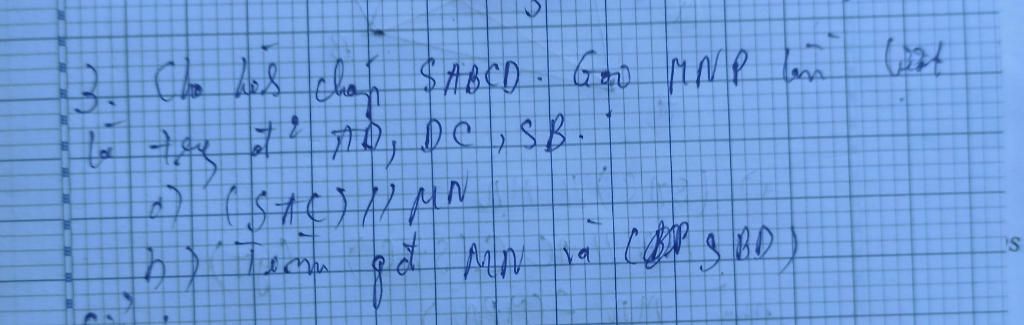 3. Cho hbs chóp SABCD. Gọi MNP lần lượt
là trg đ² AD, DC, SB.
a) (SAC) // MN
b) Tìm gđ MN và (SBD)